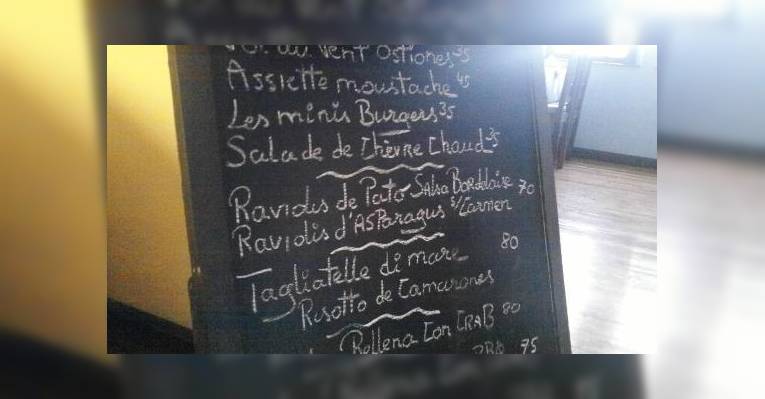 Vol au Vent Ostiones 35
Assiette moustache 45
Les minis Burgers 35
Salade de Chèvre Chaud 35
Raviolis de Pato Salsa Bordelaise 70
Raviolis d'ASParagus s/Carmen
Tagliatelle di mare 80
Risotto de Camarones
Rellena Con CRAB 80
75